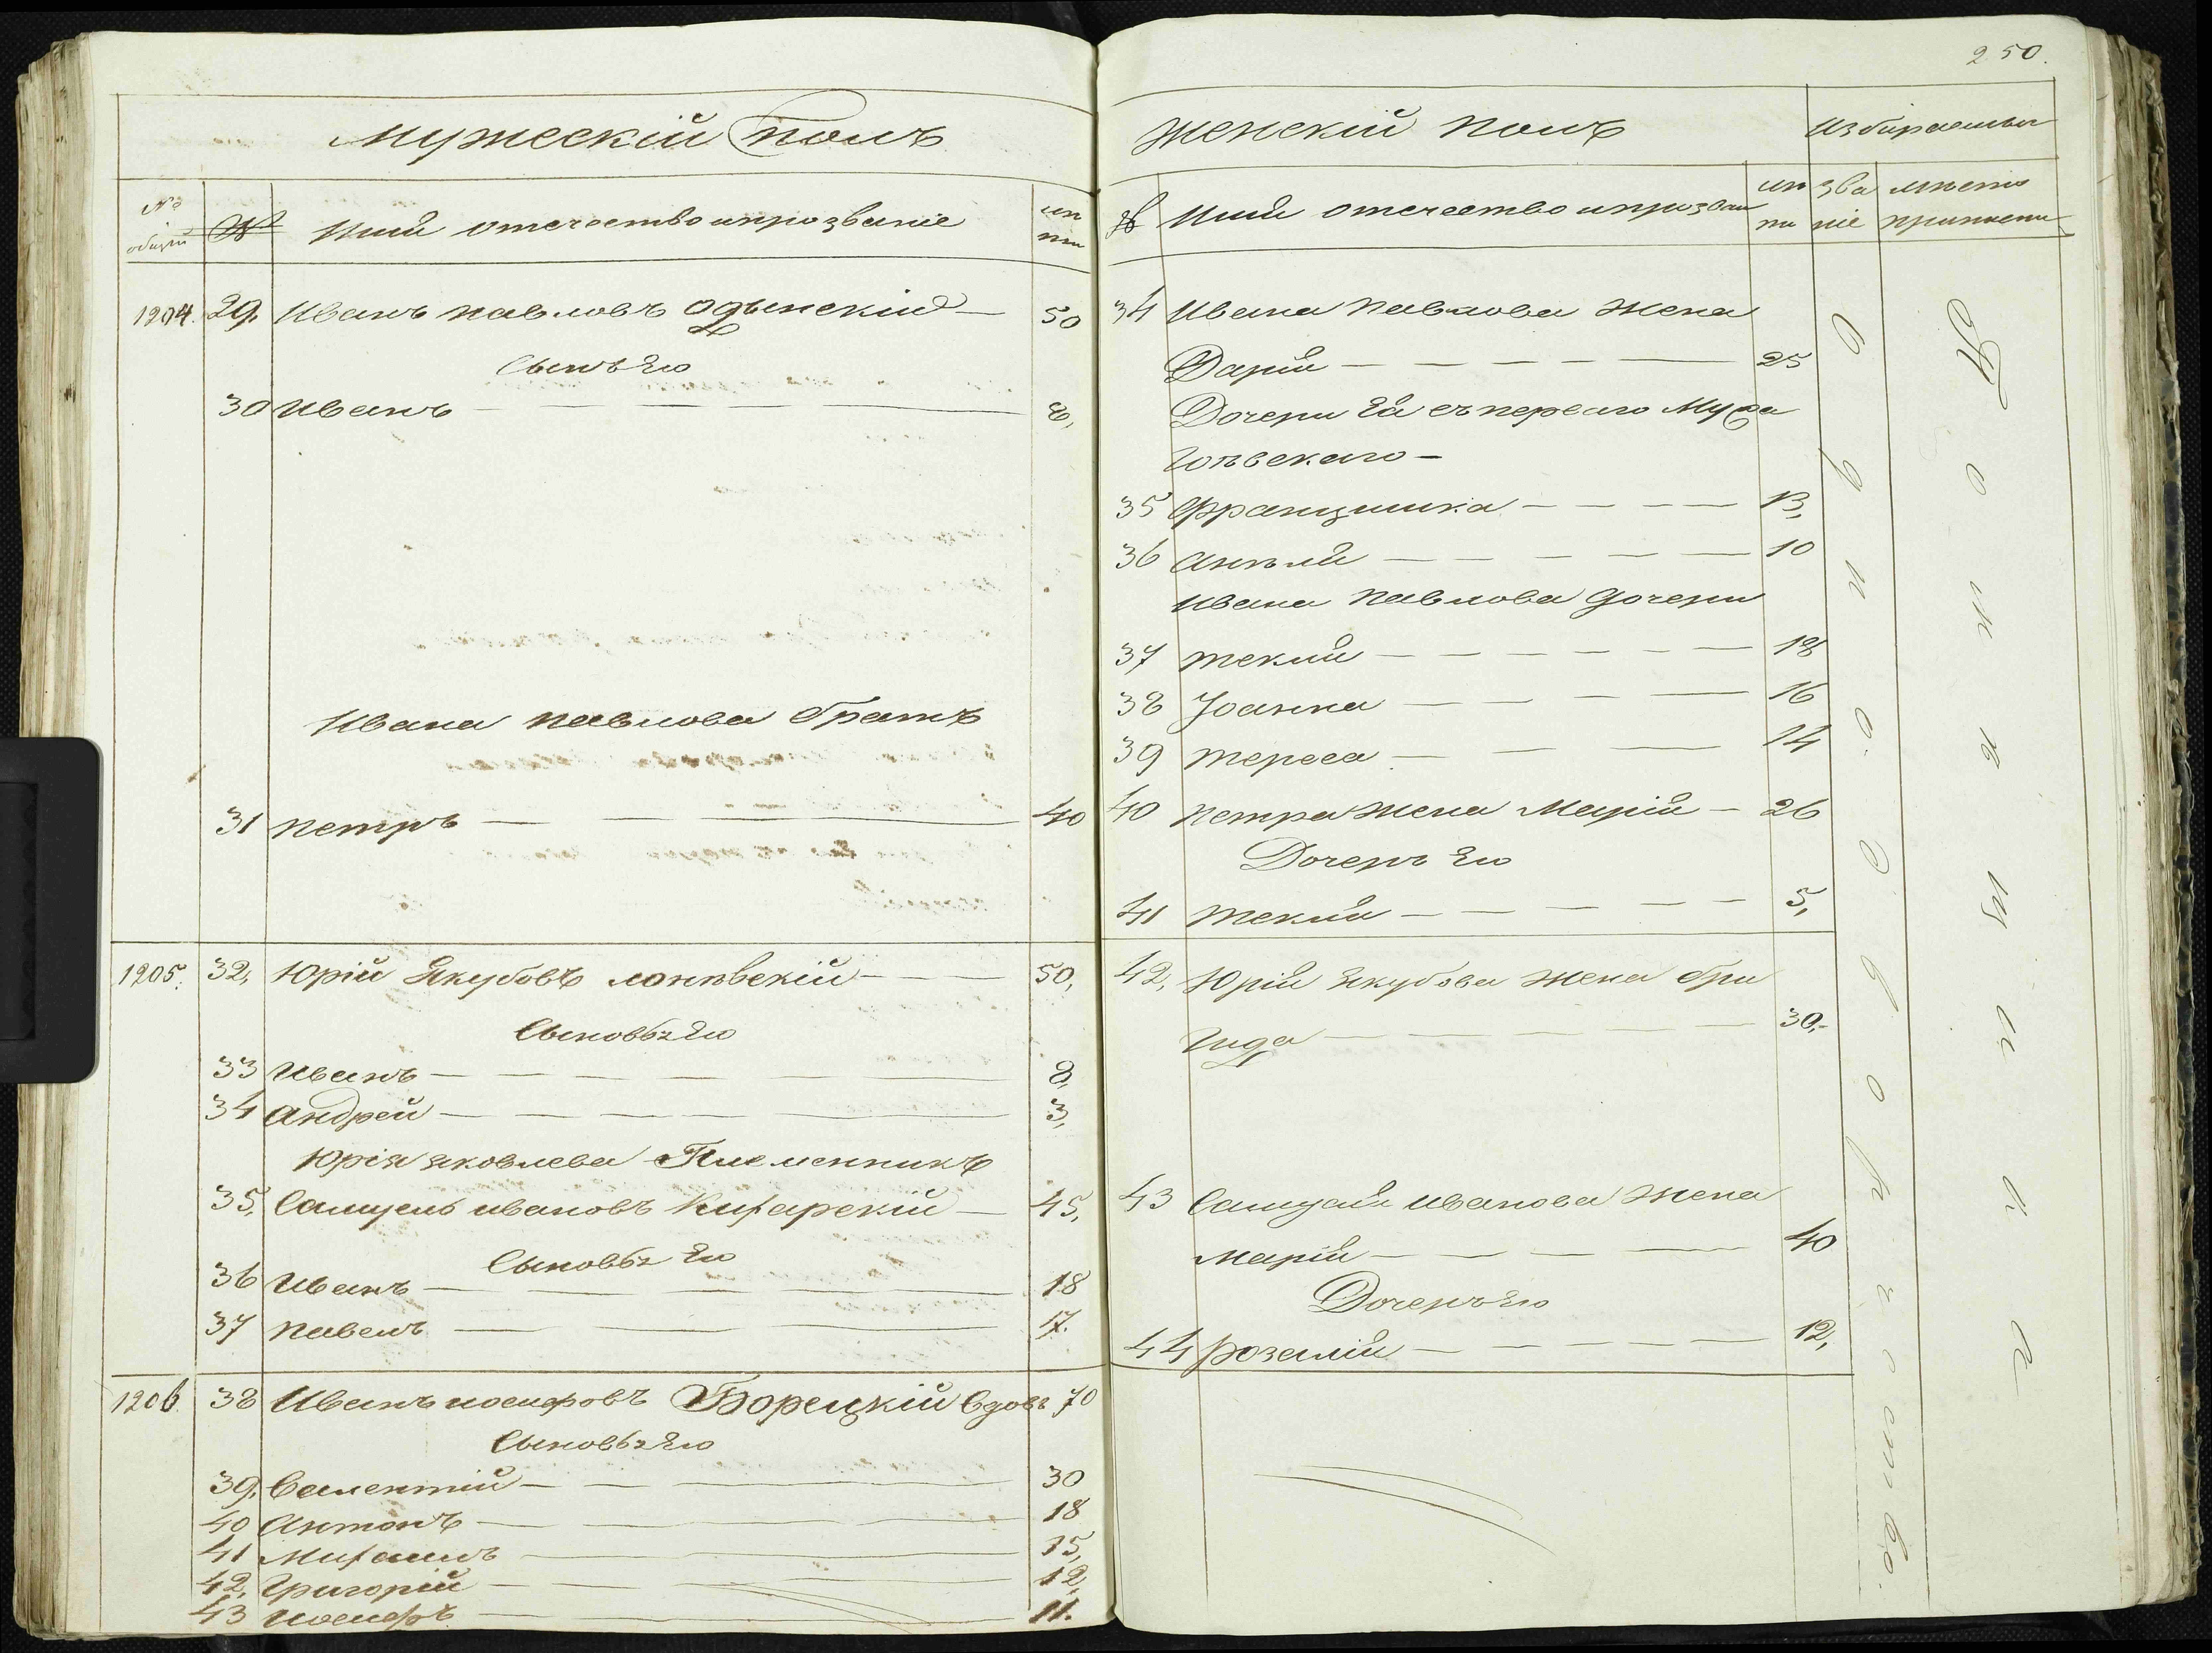 250.
Мужескій полъ
№ общій
№
Имя отечество и прозваніе
лѣты
1204. 29. Иванъ Павловъ Одынскій — 50
Сынъ Его
30 Иванъ — 8,
Ивана Павлова братъ
31 Петръ — 40
1205. 32, Юрій Якубовъ — 50,
Сыновья Его
33 Иванъ — 8,
34 Андрей — 3,
Юрія Яковлева Племенникъ
35, Самуель Ивановъ — 45,
Сыновья Его
36 Иванъ — 18
37 Павелъ — 17.
1206. 38 Иванъ Иосифовъ Борецкій вдовъ 70
Сыновья Его
39, Валентій — 30
40 Антонъ — 18
41 Михаилъ — 15,
42, Григорій — 12,
43 Иосифъ — 11.
Женскій полъ
Избираемыя
№
Имя отечество и прозван
лѣ ты
зва ніе
мѣсто приписки
34 Ивана Павлова Жена
Дарія — 25
Дочери Ея съ перваго Мужа
35 Францишка — 13,
36 Анѣля — 10
Ивана Павлова дочери
37 Текля — 18
38 Иоанна — 16
39 Тереса — 14
40 Петра Жена Марія — 26
Дочерь Его
41 Текля — 5,
42, Юрія Якубова Жена Бри
гида — 30,
43 Самуэля Иванова Жена
Марія — 40
Дочерь Его
44 Розалія — 12,
Однодворчество.